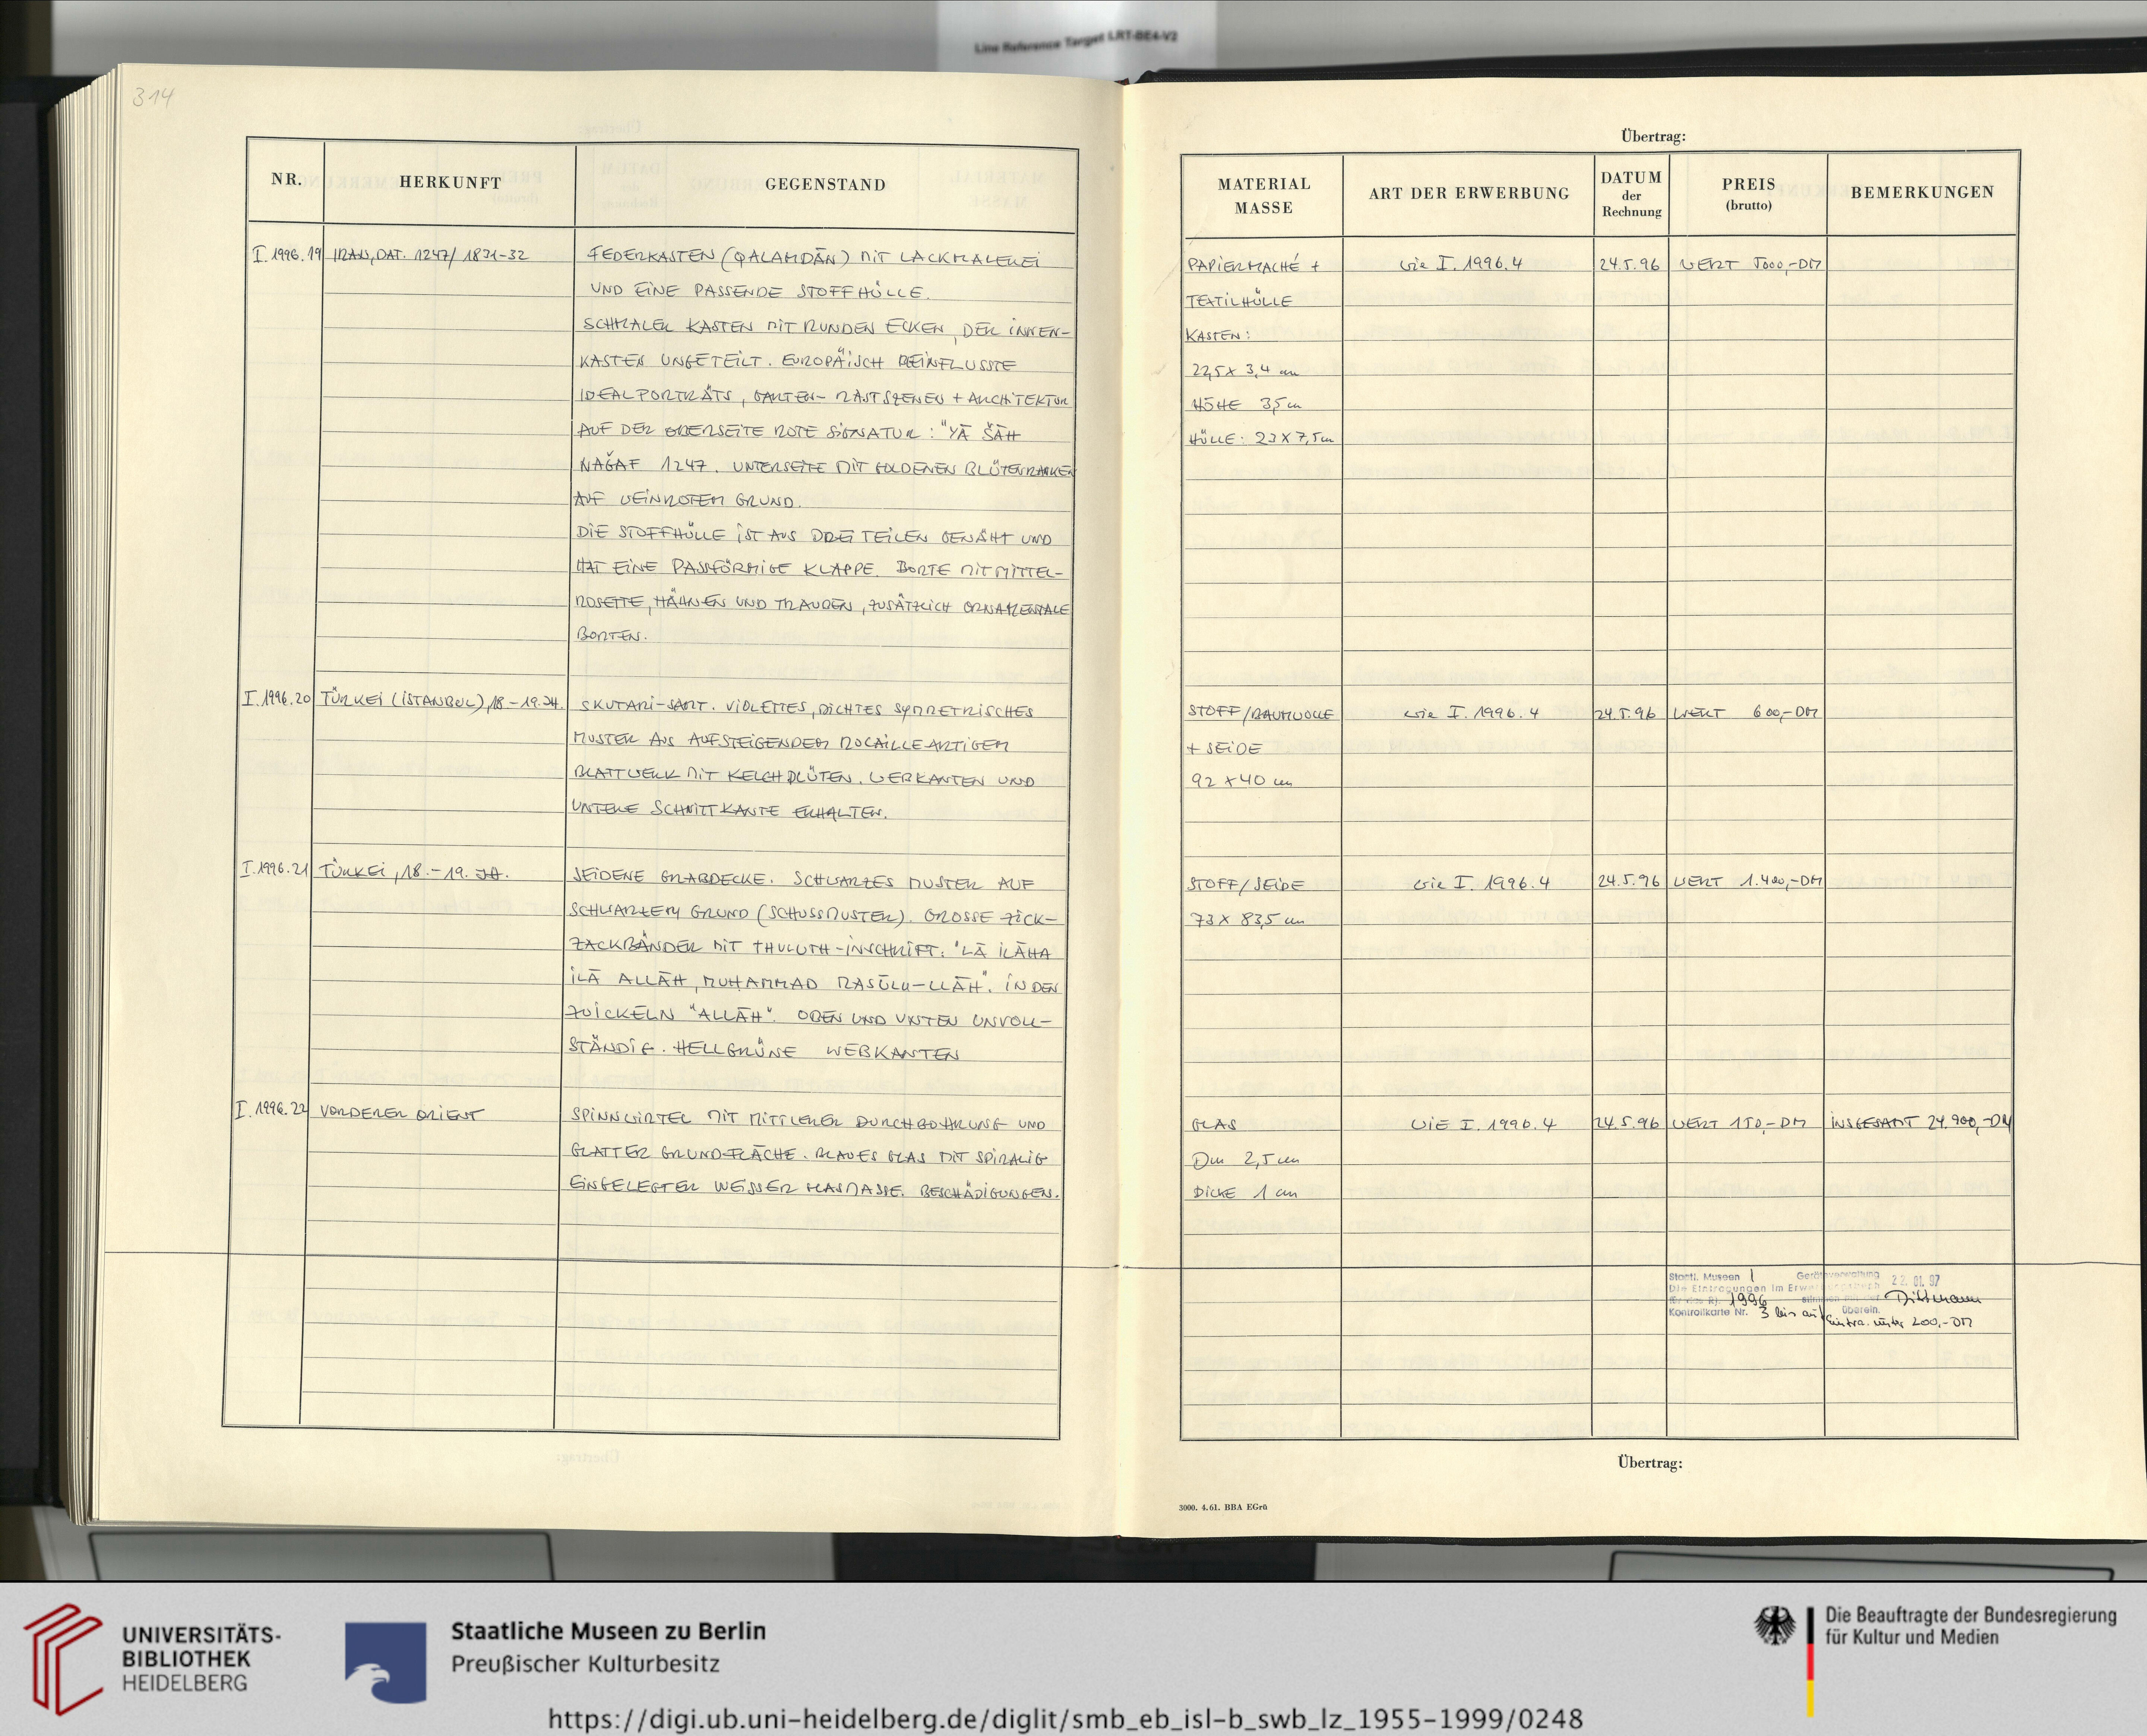 Line Reference Target LRT-BE4-V2
314
NR. HERKUNFT GEGENSTAND
I. 1996.19 IRAN, DAT. 1247/1831-32 FEDERKASTEN (QALAMDĀN) MIT LACKMALEREI
UND EINE PASSENDE STOFFHÜLLE.
SCHMALER KASTEN MIT RUNDEN ECKEN, DER INNEN-
KASTEN UNGETEILT. EUROPÄISCH BEINFLUSSTE
IDEALPORTRÄTS, GARTEN- RASTSZENEN + ARCHITEKTUR
AUF DER OBERSEITE ROTE SIGNATUR: "YĀ ŠĀH
NAǦAF 1247. UNTERSEITE MIT GOLDENEN BLÜTENRANKEN
AUF WEINROTEM GRUND.
DIE STOFFHÜLLE IST AUS DREI TEILEN GENÄHT UND
HAT EINE PASSFÖRMIGE KLAPPE. BORTE MIT MITTEL-
ROSETTE, HÄHNEN UND TRAUBEN, ZUSÄTZLICH ORNAMENTALE
BORTEN.
I. 1996.20 TÜRKEI (ISTANBUL), 18.-19. JH. SKUTARI-SAMT. VIOLETTES, DICHTES SYMMETRISCHES
MUSTER AUS AUFSTEIGENDEM ROCAILLEARTIGEM
BLATTWERK MIT KELCHBLÜTEN. WEBKANTEN UND
UNTERE SCHNITTKANTE ERHALTEN.
I. 1996.21 TÜRKEI, 18.-19. JH. SEIDENE GRABDECKE. SCHWARZES MUSTER AUF
SCHWARZEM GRUND (SCHUSSMUSTER). GROSSE ZICK-
ZACKBÄNDER MIT THULUTH-INSCHRIFT: "LĀ ILĀHA
ILĀ ALLĀH, MUHAMMAD RASŪLU-LLĀH". IN DEN
ZWICKELN "ALLĀH". OBEN UND UNTEN UNVOLL-
STÄNDIG. HELLGRÜNE WEBKANTEN
I. 1996.22 VORDERER ORIENT SPINNWIRTEL MIT MITTLERER DURCHBOHRUNG UND
GLATTER GRUNDFLÄCHE. BLAUES GLAS MIT SPIRALIG
EINGELEGTER WEISSER GLASMASSE. BESCHÄDIGUNGEN.
Übertrag:
MATERIAL MASSE ART DER ERWERBUNG DATUM der Rechnung PREIS (brutto) BEMERKUNGEN
PAPIERMACHÉ + wie I. 1996.4 24.5.96 WERT 5000,-DM
TEXTILHÜLLE
KASTEN:
22,5 x 3,4 cm
HÖHE 3,5 cm
HÜLLE: 23 x 7,5 cm
STOFF/BAUMWOLLE wie I. 1996.4 24.5.96 WERT 600,-DM
+ SEIDE
92 x 40 cm
STOFF/SEIDE wie I. 1996.4 24.5.96 WERT 1.400,-DM
73 x 83,5 cm
GLAS WIE I. 1996.4 24.5.96 WERT 150,-DM INSGESAMT 24.900,-DM
Dm 2,5 cm
DICKE 1 cm
Staatl. Museen Geräteverwaltung 22. 01. 97
Die Eintragungen im Erwerbungsbuch
für das Rj. 1996 stimmen mit der Dittmann
Kontrollkarte Nr. 3 bis auf überein.
Eintra. unter 200,-DM
Übertrag:
3000. 4. 61. BBA EGrü
UNIVERSITÄTS-
BIBLIOTHEK
HEIDELBERG
Staatliche Museen zu Berlin
Preußischer Kulturbesitz
Die Beauftragte der Bundesregierung
für Kultur und Medien
https://digi.ub.uni-heidelberg.de/diglit/smb_eb_isl-b_swb_lz_1955-1999/0248